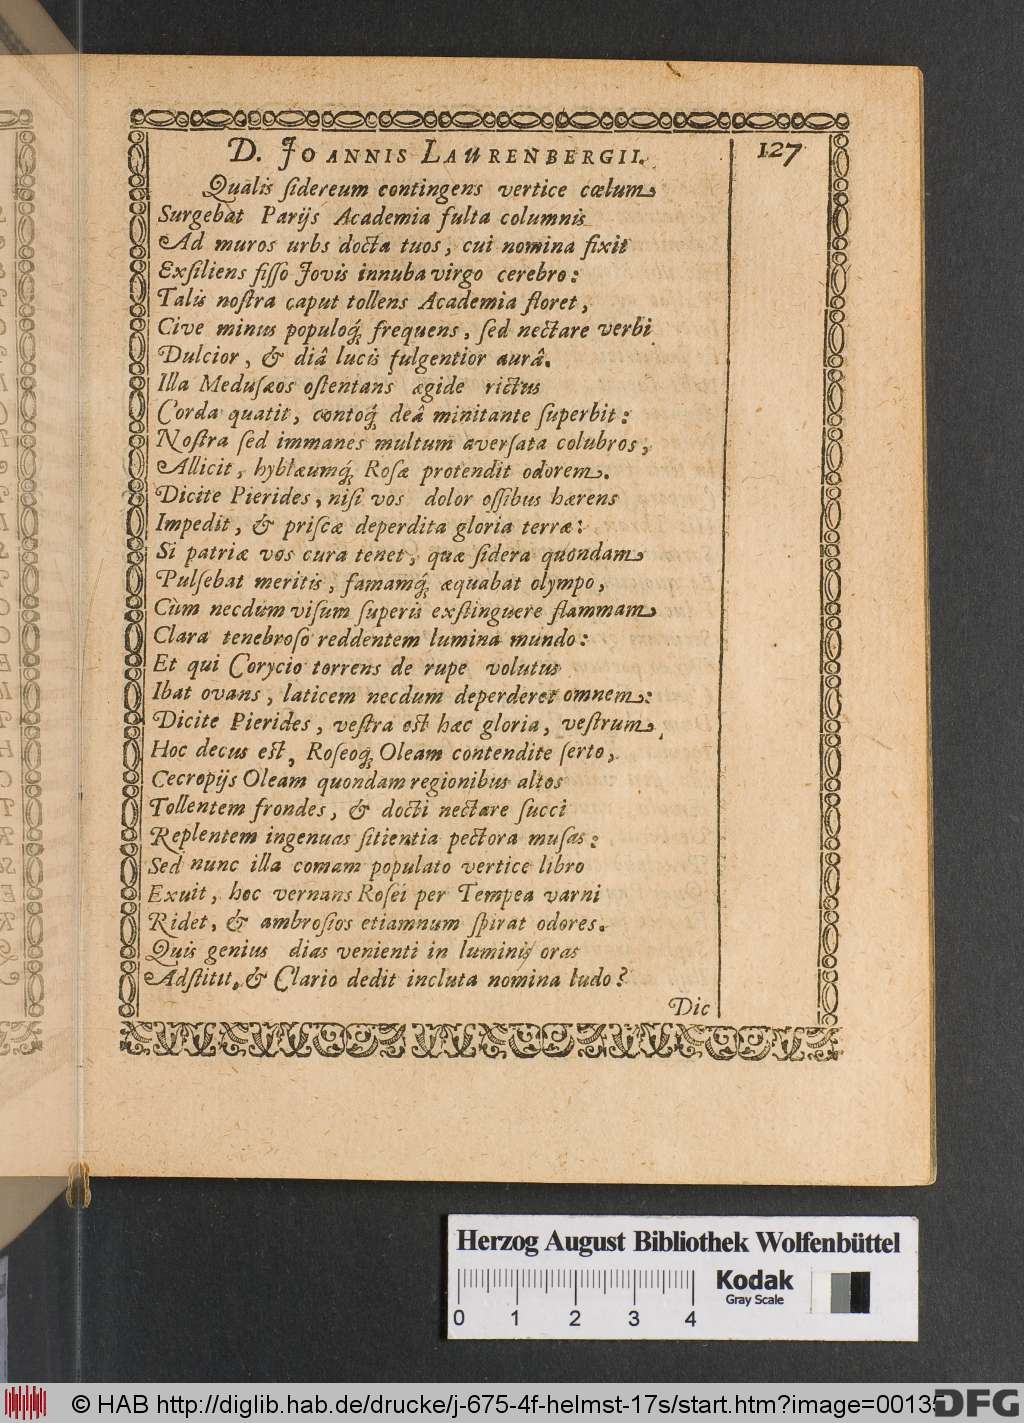 D. JOANNIS LAURENBERGII.
127
Qualis sidereum contingens vertice cœlum
Surgebat Parijs Academia fulta columnis
Ad muros urbs docta tuos, cui nomina fixit
Exsiliens fisso Jovis innuba virgo cerebro:
Talis nostra caput tollens Academia floret,
Cive minus populoq́; frequens, sed nectare verbi
Dulcior, & diâ lucis fulgentior aurâ.
Illa Medusæos ostentans ægide rictus
Corda quatit, contoq́; deâ minitante superbit:
Nostra sed immanes multum aversata colubros,
Allicit, hyblæumq́; Rosæ protendit odorem.
Dicite Pierides, nisi vos dolor ossibus hærens
Impedit, & priscæ deperdita gloria terræ:
Si patriæ vos cura tenet, quæ sidera quondam
Pulsebat meritis, famamq́; æquabat olympo,
Cùm necdum visum superis exstinguere flammam
Clara tenebroso reddentem lumina mundo:
Et qui Corycio torrens de rupe volutus
Ibat ovans, laticem necdum deperderet omnem:
Dicite Pierides, vestra est hæc gloria, vestrum
Hoc decus est, Roseoq́; Oleam contendite serto,
Cecropijs Oleam quondam regionibus altos
Tollentem frondes, & docti nectare succi
Replentem ingenuas sitientia pectora musas:
Sed nunc illa comam populato vertice libro
Exuit, hoc vernans Rosei per Tempea varni
Ridet, & ambrosios etiamnum spirat odores.
Quis genius dias venienti in luminis oras
Adstitit, & Clario dedit incluta nomina ludo?
Dic
Herzog August Bibliothek Wolfenbüttel
Kodak
Gray Scale
0 1 2 3 4
© HAB http://diglib.hab.de/drucke/j-675-4f-helmst-17s/start.htm?image=00135
DFG